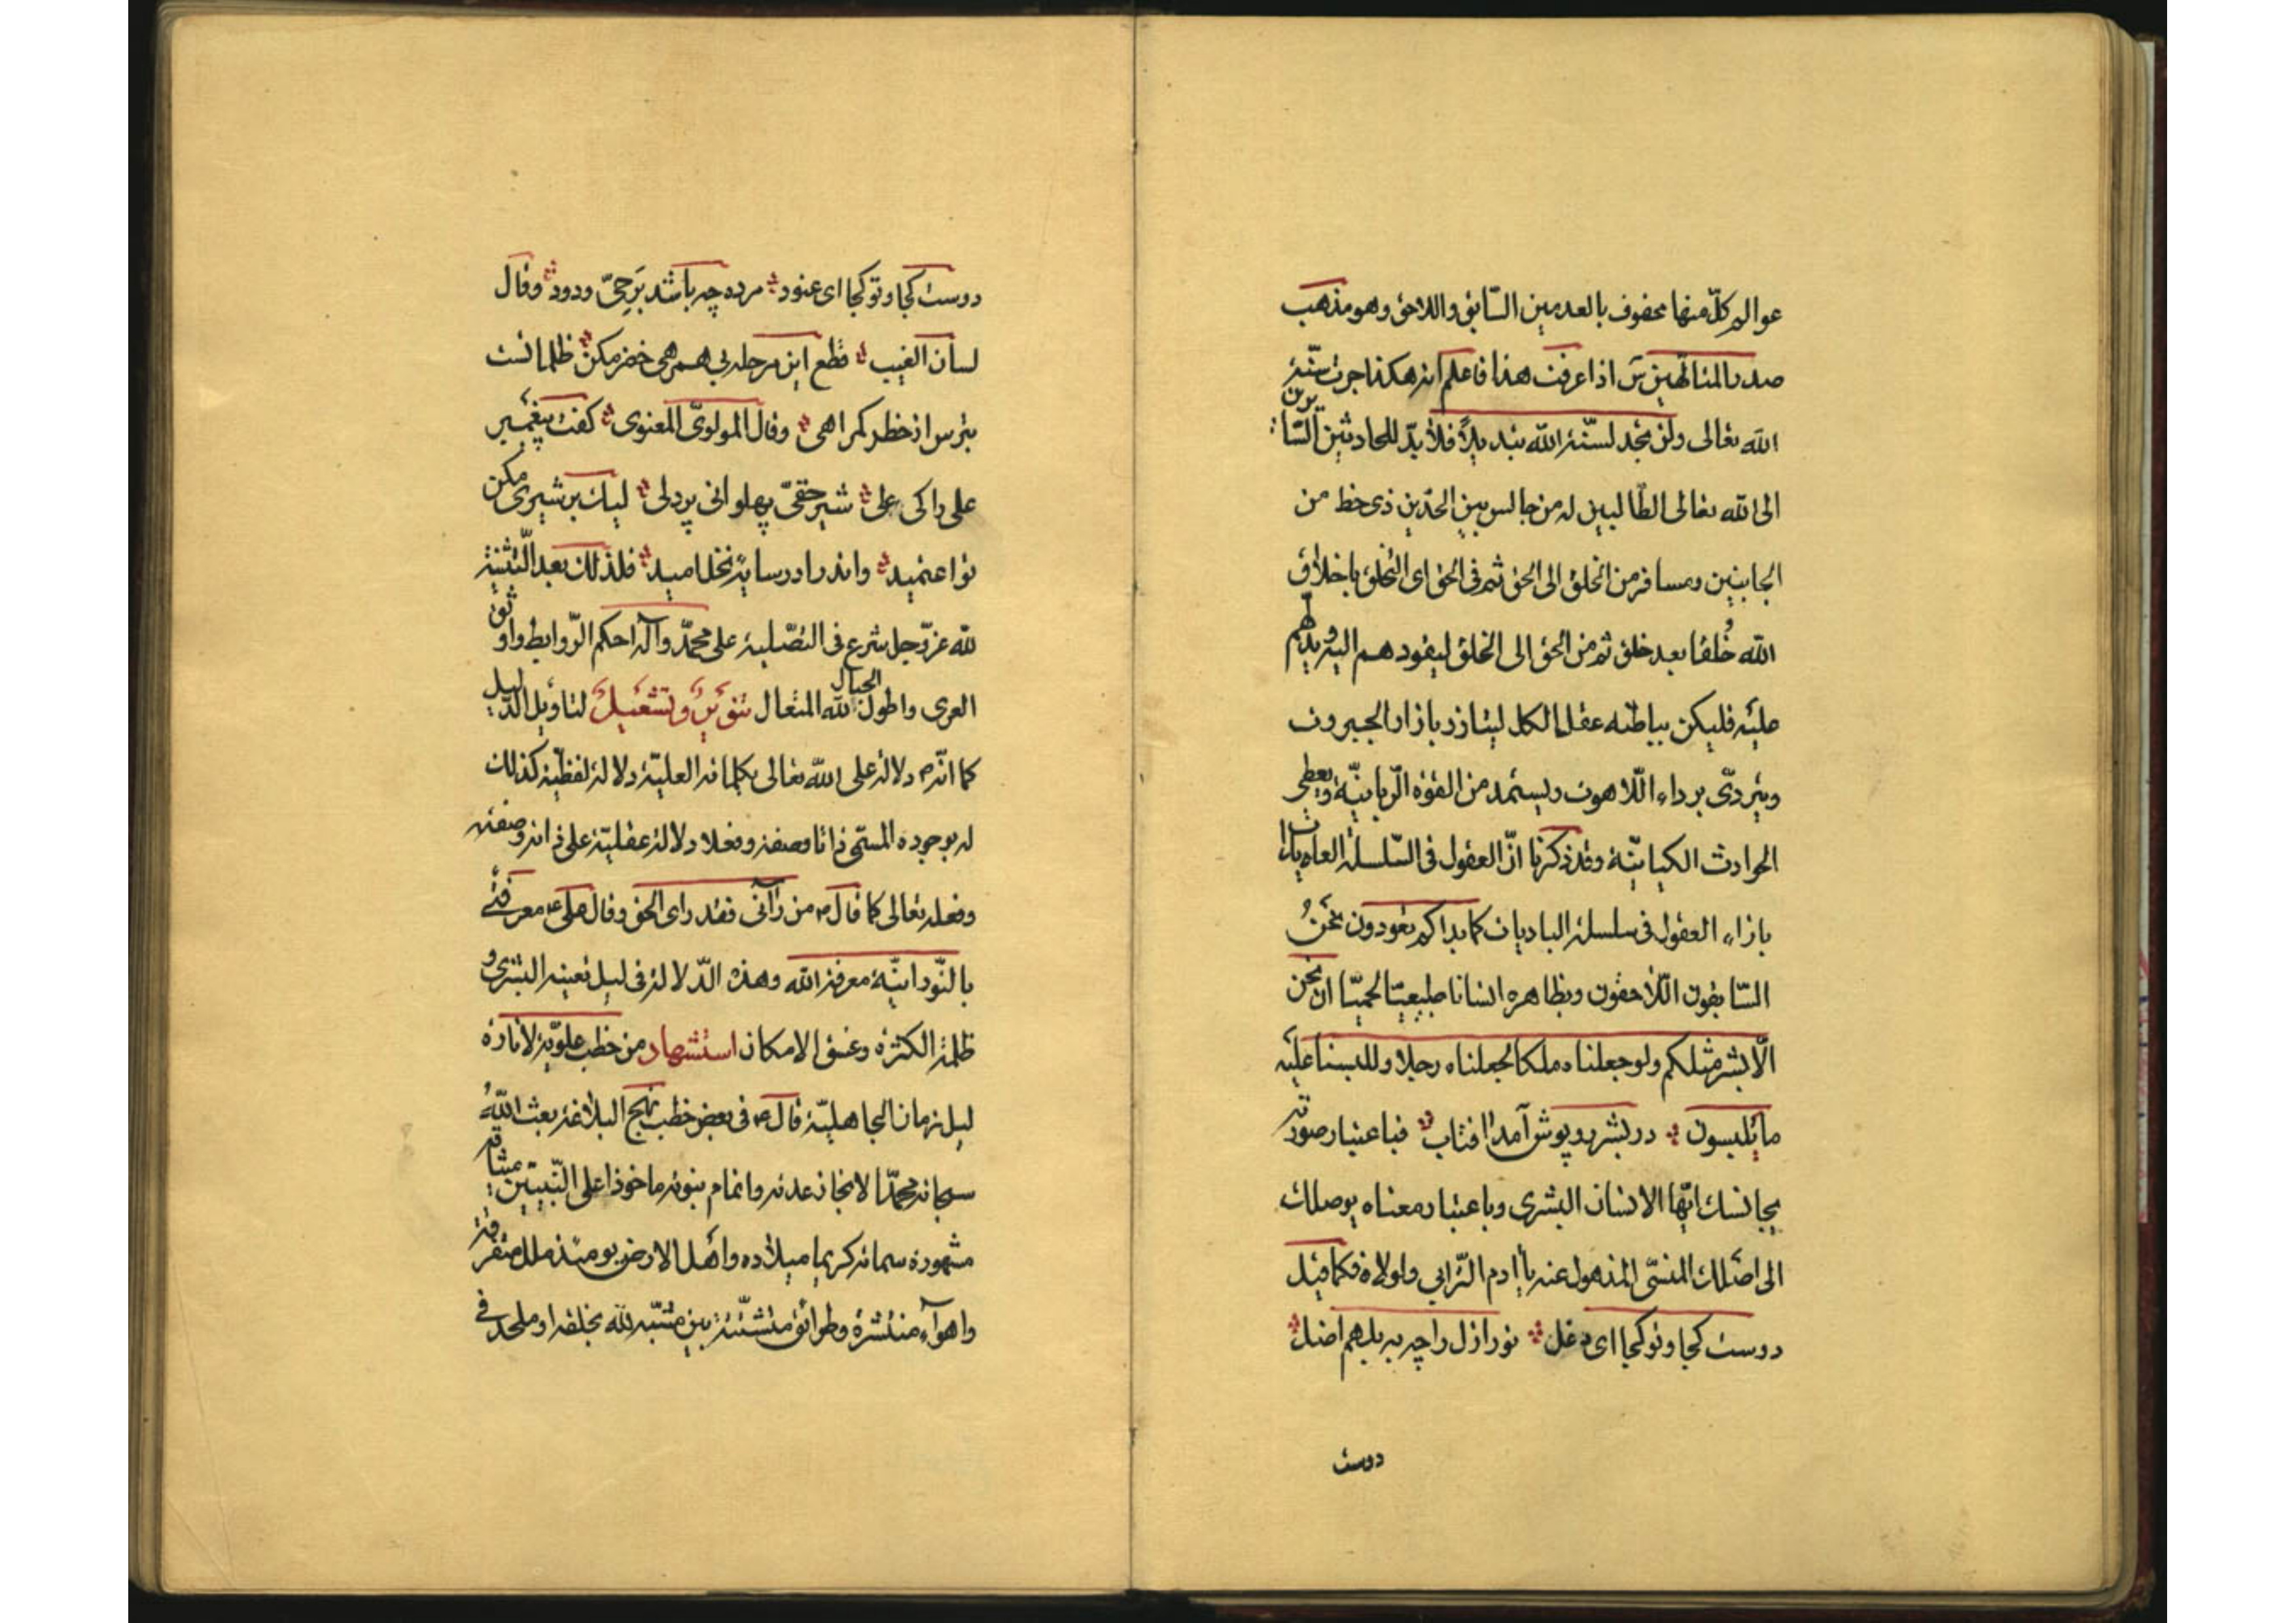 عوالم كلّ منها محفوف بالعدمين السّابق واللاحق وهو مذهب
صدر المتالّهين س اذا عرفت هذا فاعلم انه هكذا جرت سنّة
الله تعالى ولن تجد لسنّة الله تبديلاً فلا بدّ للحادثين السّايرين
الى الله تعالى الطّالبين له من جالس بين الحدّين ذى حظ من
الجانبين ومسافر من الخلق الى الحق ثم فى الحق اى التخلق باخلاق
الله خُلقا بعد خلق ثم من الحق الى الخلق ليقودهم اليه ويدلهم
عليه فليكن بباطنه عقل الكل ليتازر بازار الجبروت
ويتردّى برداء اللّاهوت ويستمد من القوّة الرّبانيّة ويعطى
الحوادث الكيانيّة وقد ذكرنا انّ العقول فى السّلسلة العايدات
بازاء العقول فى سلسلة الباديات كما بداكم تعودون نحنُ
السّابقون اللّاحقون وبظاهره انسانا طبيعيّا لحميّا ان نحن
الّا بشر مثلكم ولو جعلناه ملكا لجعلناه رجلا وللبسنا عليه
ما يلبسون در بشر روپوش آمد افتاب فباعتبار صورته
يجانسك ايّها الانسان البشرى وباعتبار معناه يوصلك
الى اصلك المنسّى المذهول عنه يا ادم التّرابى ولولاه فكما قيل
دوست كجا و تو كجا اى دغل نور ازل را چه به بل هم اضل
دوست
دوست كجا و تو كجا اى عنود مرده چه باشد بَرِ حىّ ودود وقال
لسان الغيب قطع اين مرحله بى همرهى خضر مكن ظلماتست
بترس از خطر كمراهى وقال المولوىّ المعنوى كفت پيغمبر
على را كى على شير حقىّ پهلوانى پردلى ليك بر شيرى مكن
تو اعتميد واندرا در سايهٔ نخل اميد فلذلك بعد الثّنية
لله عزّ وجل شرع فى التصّلية على محمّد وآله احكم الرّوابط واوثق
العرى واطول الحبال لله المتعال تنوير وتشعيل لتاويل الدّليل
كما انّه دلالة على الله تعالى بكلماته العليّة دلالة لفظيّة كذلك
له بوجوده المسمّى ذاتا وصفة وفعلا دلالة عقليّة على ذاته وصفته
وفعله تعالى كما قال ص من رآنى فقد راى الحق وقال على ع معرفتى
بالنّورانيّة معرفة الله وهذه الدّلالة فى ليل تعينه البشرى و
ظلمة الكثرة وغسق الامكان استشهاد من خطب علويّة لانارة
ليل زمان الجاهليّة قال ع فى بعض خطب نهج البلاغة بعث اللّهُ
سبحانه محمّدا لانجاز عدته واتمام نبوته ماخوذا على النّبييّن ميثاقه
مشهورة سماته كريما ميلاده واهل الارض يومئذ ملل متفرقة
واهوآء منتشرة وطرائق متشتّتة بين مشبّه لله بخلقه او ملحد فى